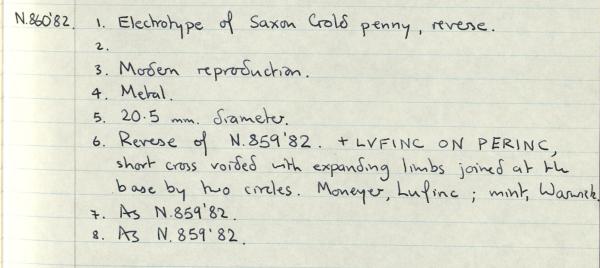 N.860'82. 1. Electrotype of Saxon Gold penny, reverse.
2.
3. Modern reproduction.
4. Metal.
5. 20.5 mm. diameter.
6. Reverse of N.859'82. + LVFINC ON PERINC,
short cross voided with expanding limbs joined at the
base by two circles. Moneyer, Lufinc ; mint, Warwick.
7. As N.859'82.
8. As N.859'82.